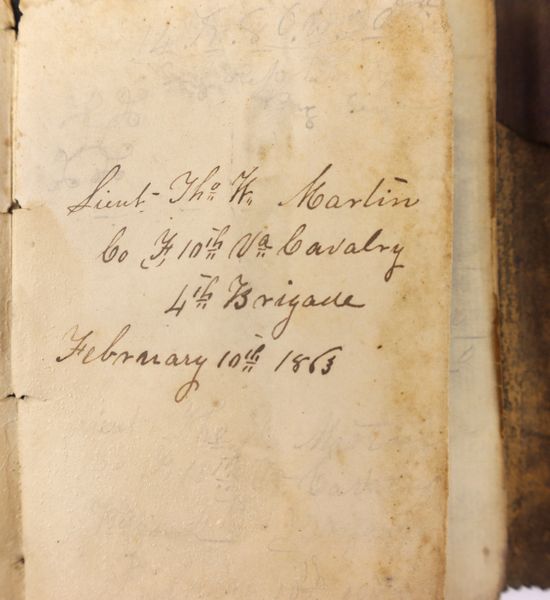 Lieut- Tho W. Martin
Co F, 10th Va Cavalry
4th Brigade
February 10th 1863